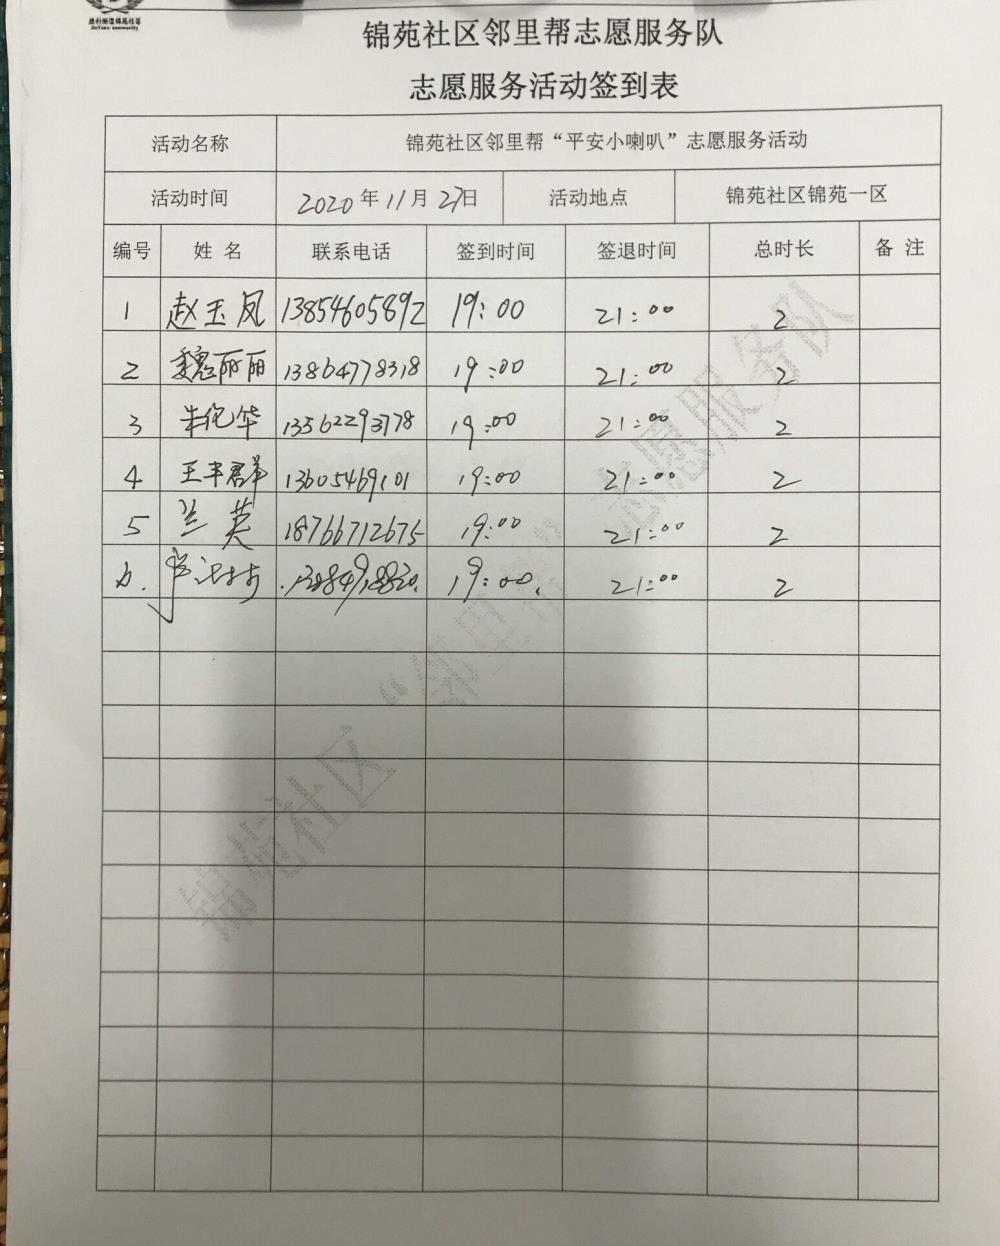 胜利街道锦苑社区
JinYuan community
锦苑社区邻里帮志愿服务队
志愿服务活动签到表
活动名称 锦苑社区邻里帮“平安小喇叭”志愿服务活动
活动时间 2020年11月27日 活动地点 锦苑社区锦苑一区
编号 姓名 联系电话 签到时间 签退时间 总时长 备注
1 赵玉凤 13854605892 19:00 21:00 2
2 魏丽丽 13864778318 19:00 21:00 2
3 华 13562293778 19:00 21:00 2
4 王 13605469101 19:00 21:00 2
5 兰英 18766712675 19:00 21:00 2
6. 19:00. 21:00 2
锦苑社区“邻里帮”志愿服务队